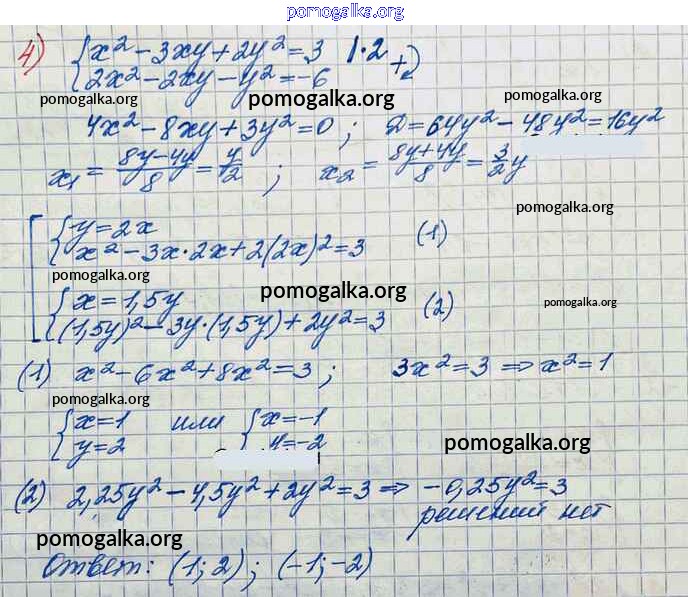 pomogalka.org
4) { x² - 3xy + 2y² = 3 | · 2
{ 2x² - 2xy - y² = -6 +
pomogalka.org pomogalka.org pomogalka.org
4x² - 8xy + 3y² = 0 ; D = 64y² - 48y² = 16y²
x₁ = (8y - 4y)/8 = y/2 ; x₂ = (8y + 4y)/8 = 3/2 y
pomogalka.org
[ { y = 2x
{ x² - 3x · 2x + 2(2x)² = 3 (1)
pomogalka.org pomogalka.org pomogalka.org
{ x = 1,5y
{ (1,5y)² - 3y · (1,5y) + 2y² = 3 (2)
(1) x² - 6x² + 8x² = 3 ; 3x² = 3 ⇒ x² = 1
pomogalka.org
{ x = 1 или { x = -1
{ y = 2 { y = -2
pomogalka.org
(2) 2,25y² - 4,5y² + 2y² = 3 ⇒ -0,25y² = 3
решений нет
pomogalka.org
Ответ: (1; 2) ; (-1; -2)